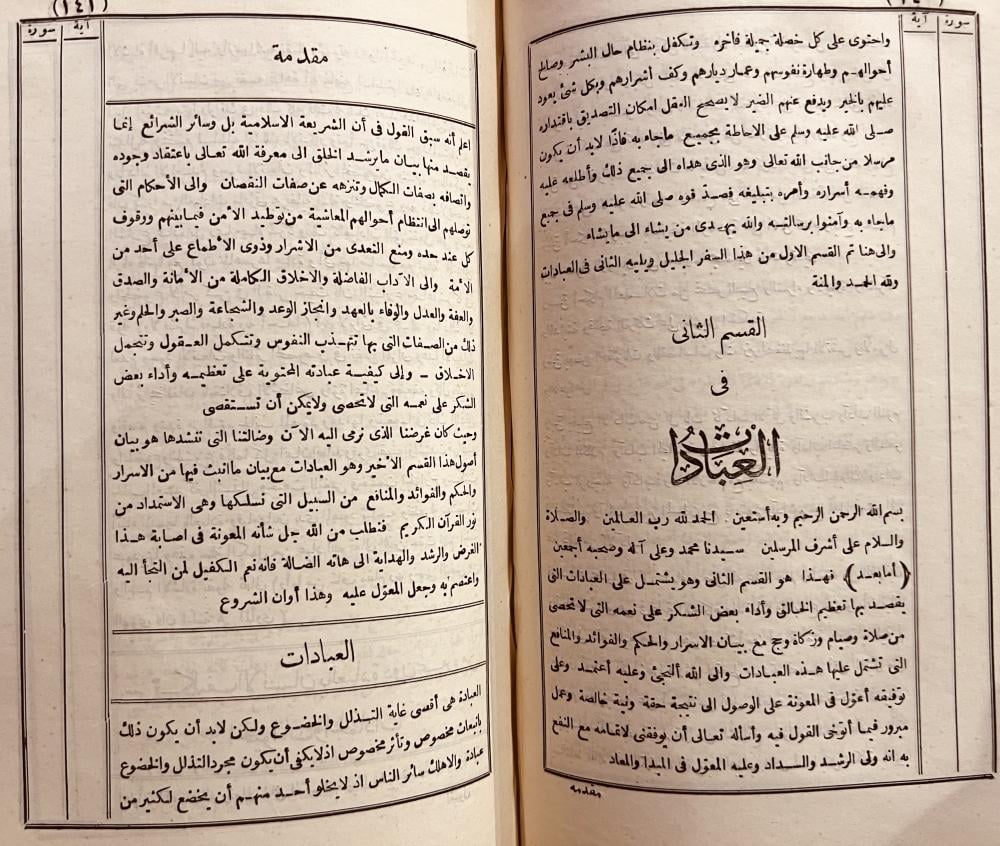 سورة آية
واحتوى على كل خصلة جميلة فاخره وتكفل بنظام حال البشر وصلاح
أحوالهم وطهارة نفوسهم وعمار ديارهم وكف أشرارهم وبكل شئ يعود
عليهم بالخير ويدفع عنهم الضير لا يصحح العقل امكان التصديق باقتداره
صلى الله عليه وسلم على الاحاطة بجميع ماجاء به فاذا لابد أن يكون
مرسلا من جانب الله تعالى وهو الذى هداه الى جميع ذلك وأطلعه عليه
وفهمه أسراره وأمره بتبليغه فصدقوه صلى الله عليه وسلم فى جميع
ماجاء به وآمنوا برسالته والله يهدى من يشاء الى مايشاء
والى هنا تم القسم الاول من هذا السفر الجليل ويليه الثانى فى العبادات
ولله الحمد والمنة
القسم الثانى
فى
العبادات
بسم الله الرحمن الرحيم وبه أستعين الحمد لله رب العالمين والصلاة
والسلام على أشرف المرسلين سيدنا محمد وعلى آله وصحبه أجمعين
(أما بعد) فهذا هو القسم الثانى وهو يشتمل على العبادات التى
يقصد بها تعظيم الخالق وأداء بعض الشكر على نعمه التى لا تحصى
من صلاة وصيام وزكاة وحج مع بيان الاسرار والحكم والفوائد والمنافع
التى تشتمل عليها هذه العبادات والى الله ألتجئ وعليه أعتمد وعلى
توفيقه أعول فى المعونة على الوصول الى نتيجة حقة ونية خالصة وعمل
مبرور فيما أتوخى القول فيه وأسأله تعالى أن يوفقنى لاقامه مع النفع
به انه ولى الرشد والسداد وعليه المعول فى المبدا والمعاد
مقدمه
(١٤١)
آية سورة
مقدمة
اعلم أنه سبق القول فى أن الشريعة الاسلامية بل وسائر الشرائع إنما
يقصد منها بيان ما يرشد الخلق الى معرفة الله تعالى باعتقاد وجوده
واتصافه بصفات الكمال وتنزهه عن صفات النقصان والى الأحكام التى
توصلهم الى انتظام أحوالهم المعاشية من توطيد الأمن فيما بينهم ووقوف
كل عند حده ومنع التعدى من الاشرار وذوى الأطماع على أحد من
الأمة والى الآداب الفاضلة والاخلاق الكاملة من الأمانة والصدق
والعفة والعدل والوفاء بالعهد وانجاز الوعد والشجاعة والصبر والحلم وغير
ذلك من الصفات التى بها تتهذب النفوس وتتكمل العقول وتتجمل
الاخلاق - وإلى كيفية عبادته المحتوية على تعظيمه وأداء بعض
الشكر على نعمه التى لا تحصى ولا يمكن أن تستقصى
وحيث كان غرضنا الذى نرمى اليه الآن وضالتنا التى ننشدها هو بيان
أصول هذا القسم الأخير وهو العبادات مع بيان ما انبث فيها من الاسرار
والحكم والفوائد والمنافع من السبيل التى نسلكها وهى الاستمداد من
نور القرآن الكريم فنطلب من الله جل شأنه المعونة فى اصابة هذا
الغرض والرشد والهداية الى هاته الضالة فانه نعم الكفيل لمن التجأ اليه
واعتصم به وجعل المعول عليه وهذا أوان الشروع
العبادات
العبادة هى أقصى غاية التذلل والخضوع ولكن لابد أن يكون ذلك
بانبعاث مخصوص وتأثر مخصوص اذ لا يكفى أن يكون مجرد التذلل والخضوع
عبادة والاهلك سائر الناس اذ لا يخلو أحد منهم أن يخضع لكثير من